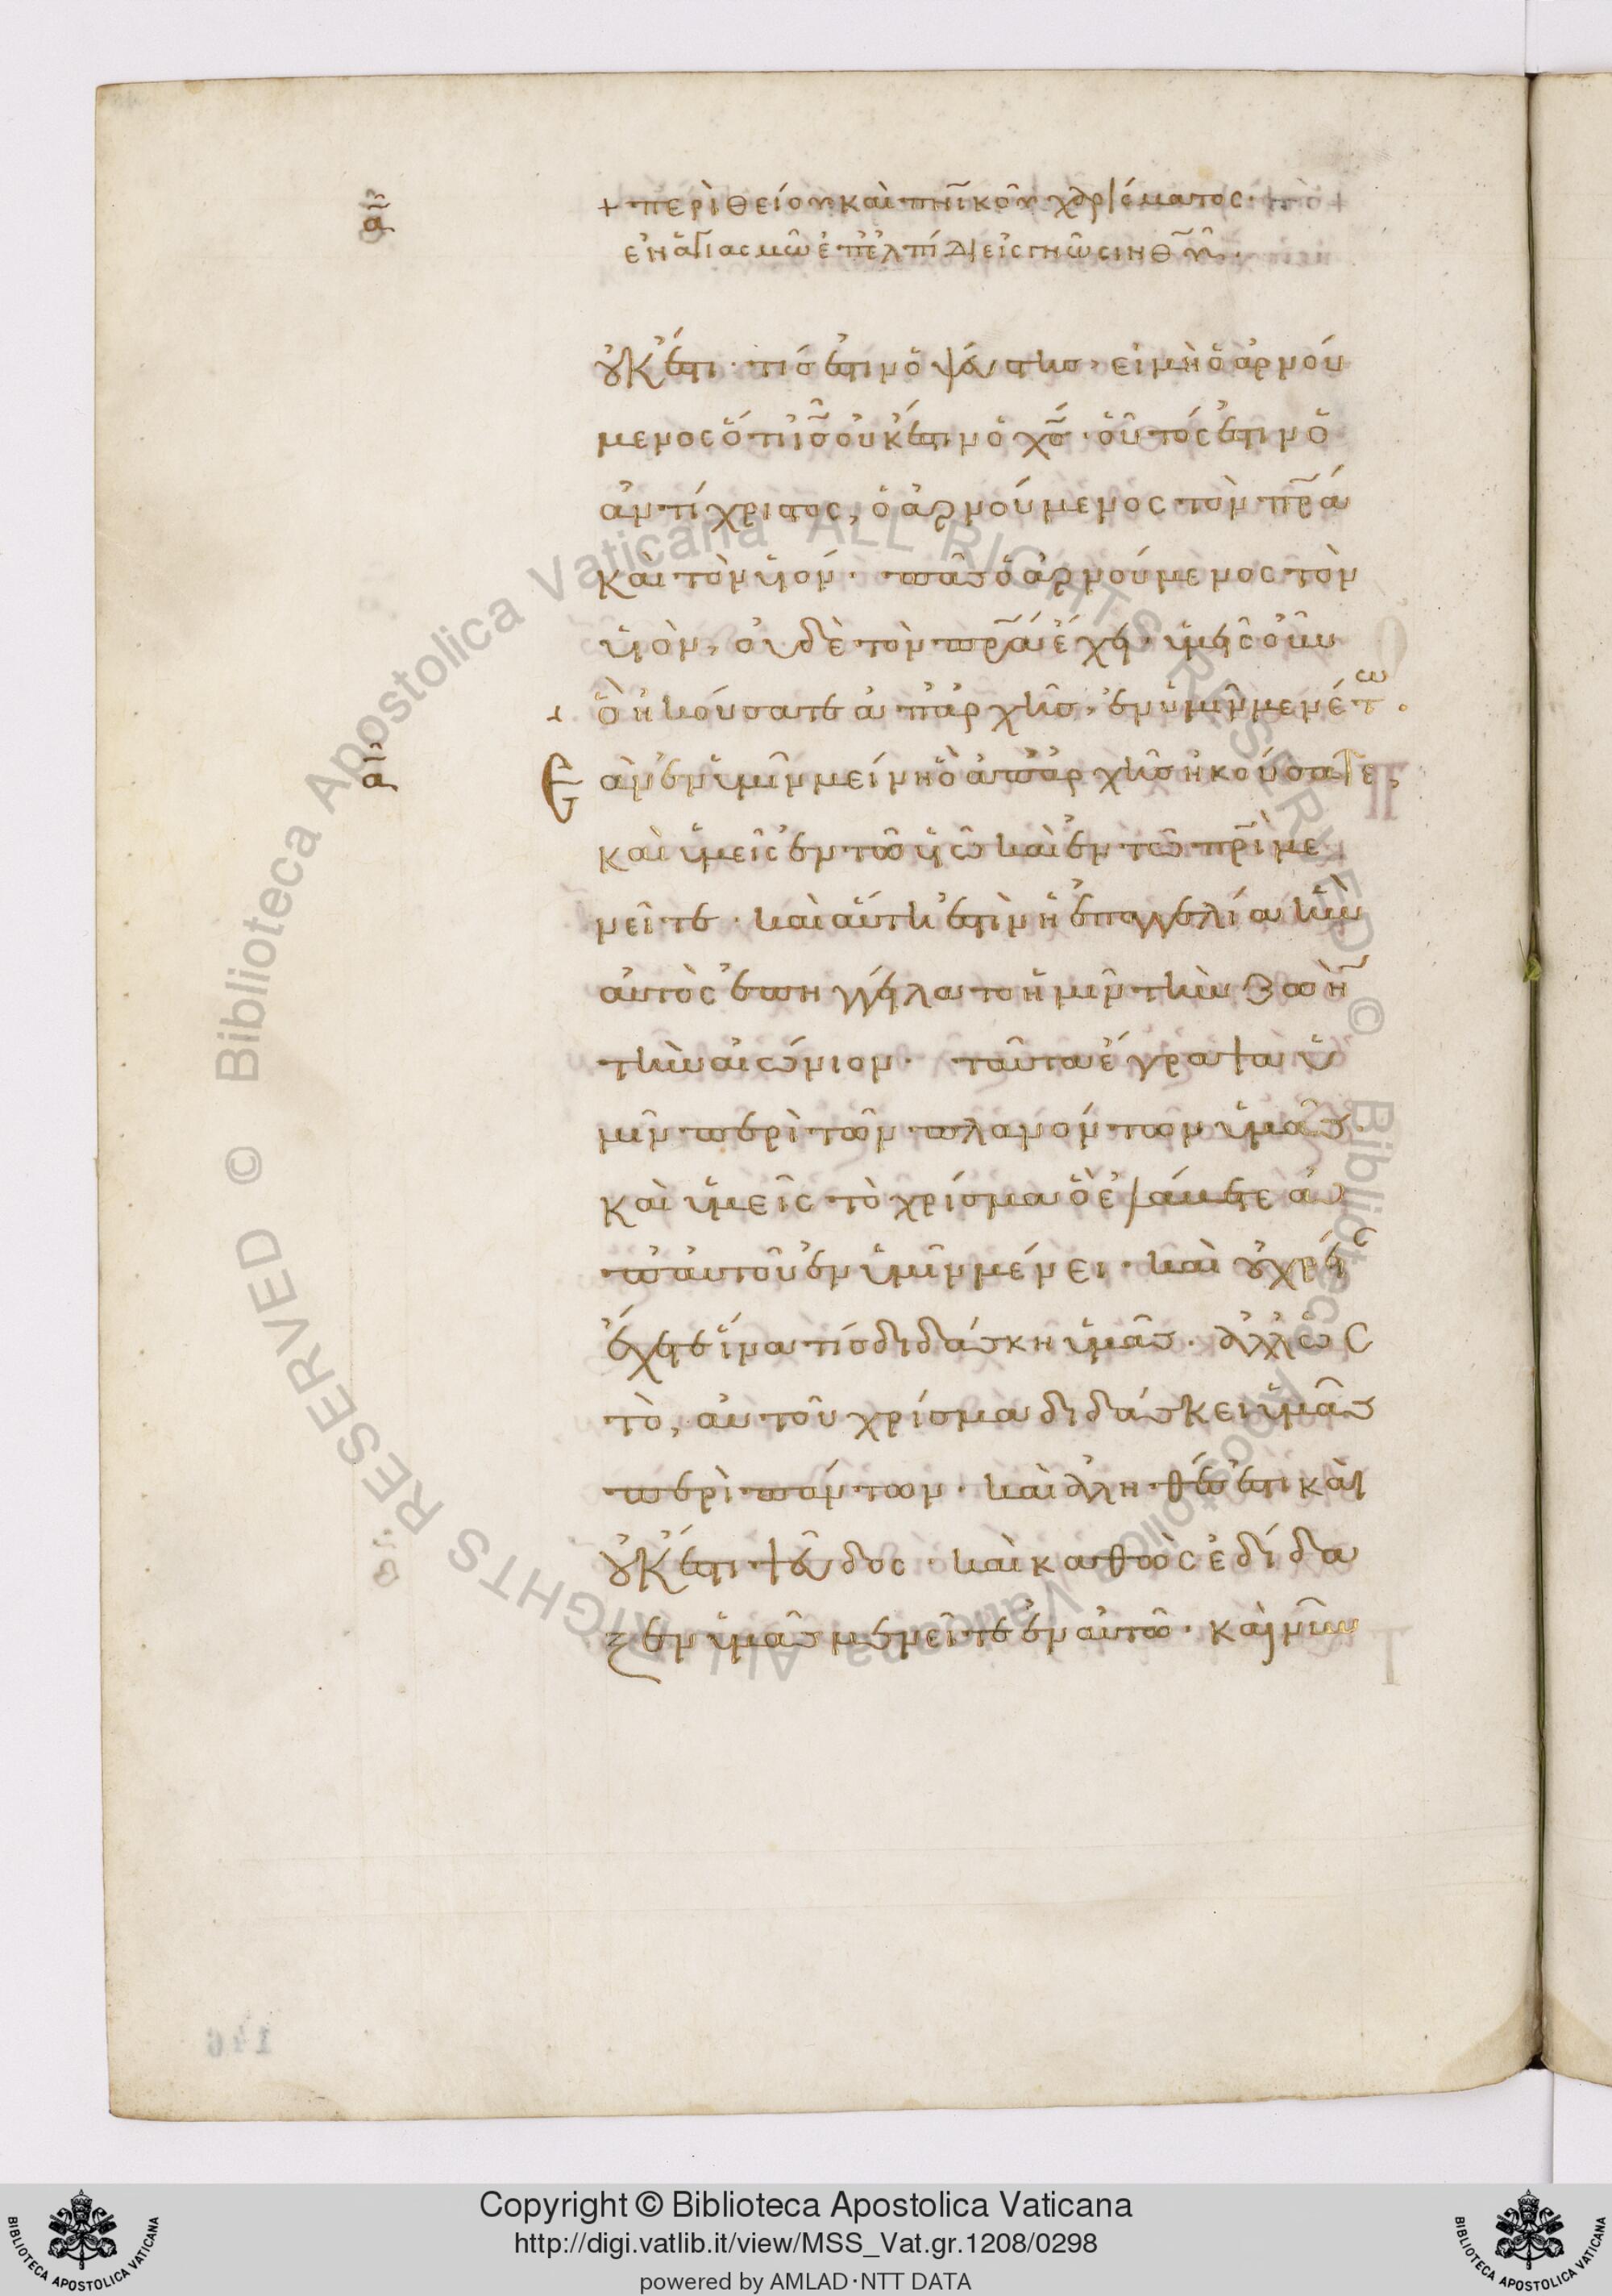 + περὶ θείου καὶ πν̅ικοῦ χαρίσματος·
ἐν ἁγιασμῶ ἐπ' ἐλπίδι εἰς γνῶσιν θ̅υ·
οὐκ ἔστι· τίς ἐστιν ὁ ψεύστης, εἰ μὴ ὁ ἀρνού
μενος ὅτι ι̅σ οὐκ ἔστιν ὁ χ̅σ· οὗτός ἐστιν ὁ
ἀντίχριστος, ὁ ἀρνούμενος τὸν π̅ρ̅α
καὶ τὸν υἱόν· πᾶς ὁ ἀρνούμενος τὸν
υἱὸν, οὐδὲ τὸν π̅ρ̅α ἔχει· ὑμεῖς οὖν
ὃ ἠκούσατε ἀπ' ἀρχῆς, ἐν ὑμῖν μενέτω·
ἐὰν ἐν ὑμῖν μείνη ὃ ἀπ' ἀρχῆς ἠκούσατε,
καὶ ὑμεῖς ἐν τῶ υἱῶ καὶ ἐν τῶ π̅ρ̅ι με
νεῖτε· καὶ αὕτη ἐστὶν ἡ ἐπαγγελία ἣν
αὐτὸς ἐπηγγείλατο ἡμῖν τὴν ζωὴν
τὴν αἰώνιον· ταῦτα ἔγραψα ὑ
μῖν περὶ τῶν πλανόντων ὑμᾶς·
καὶ ὑμεῖς τὸ χρίσμα ὃ ἐλάβετε ἀ
π' αὐτοῦ ἐν ὑμῖν μένει· καὶ οὐ χρεί
ἔχετε ἵνα τίς διδάσκη ὑμᾶς· ἀλλ' ὡς
τὸ, αὐτοῦ χρίσμα διδάσκει ὑμᾶς
περὶ πάντων· καὶ ἀληθές ἐστι καὶ
οὐκ ἔστι ψεῦδος· καὶ καθὼς ἐδίδα
ξεν ὑμᾶς μενεῖτε ἐν αὐτῶ· καὶ νῦν
Copyright © Biblioteca Apostolica Vaticana
http://digi.vatlib.it/view/MSS_Vat.gr.1208/0298
powered by AMLAD·NTT DATA